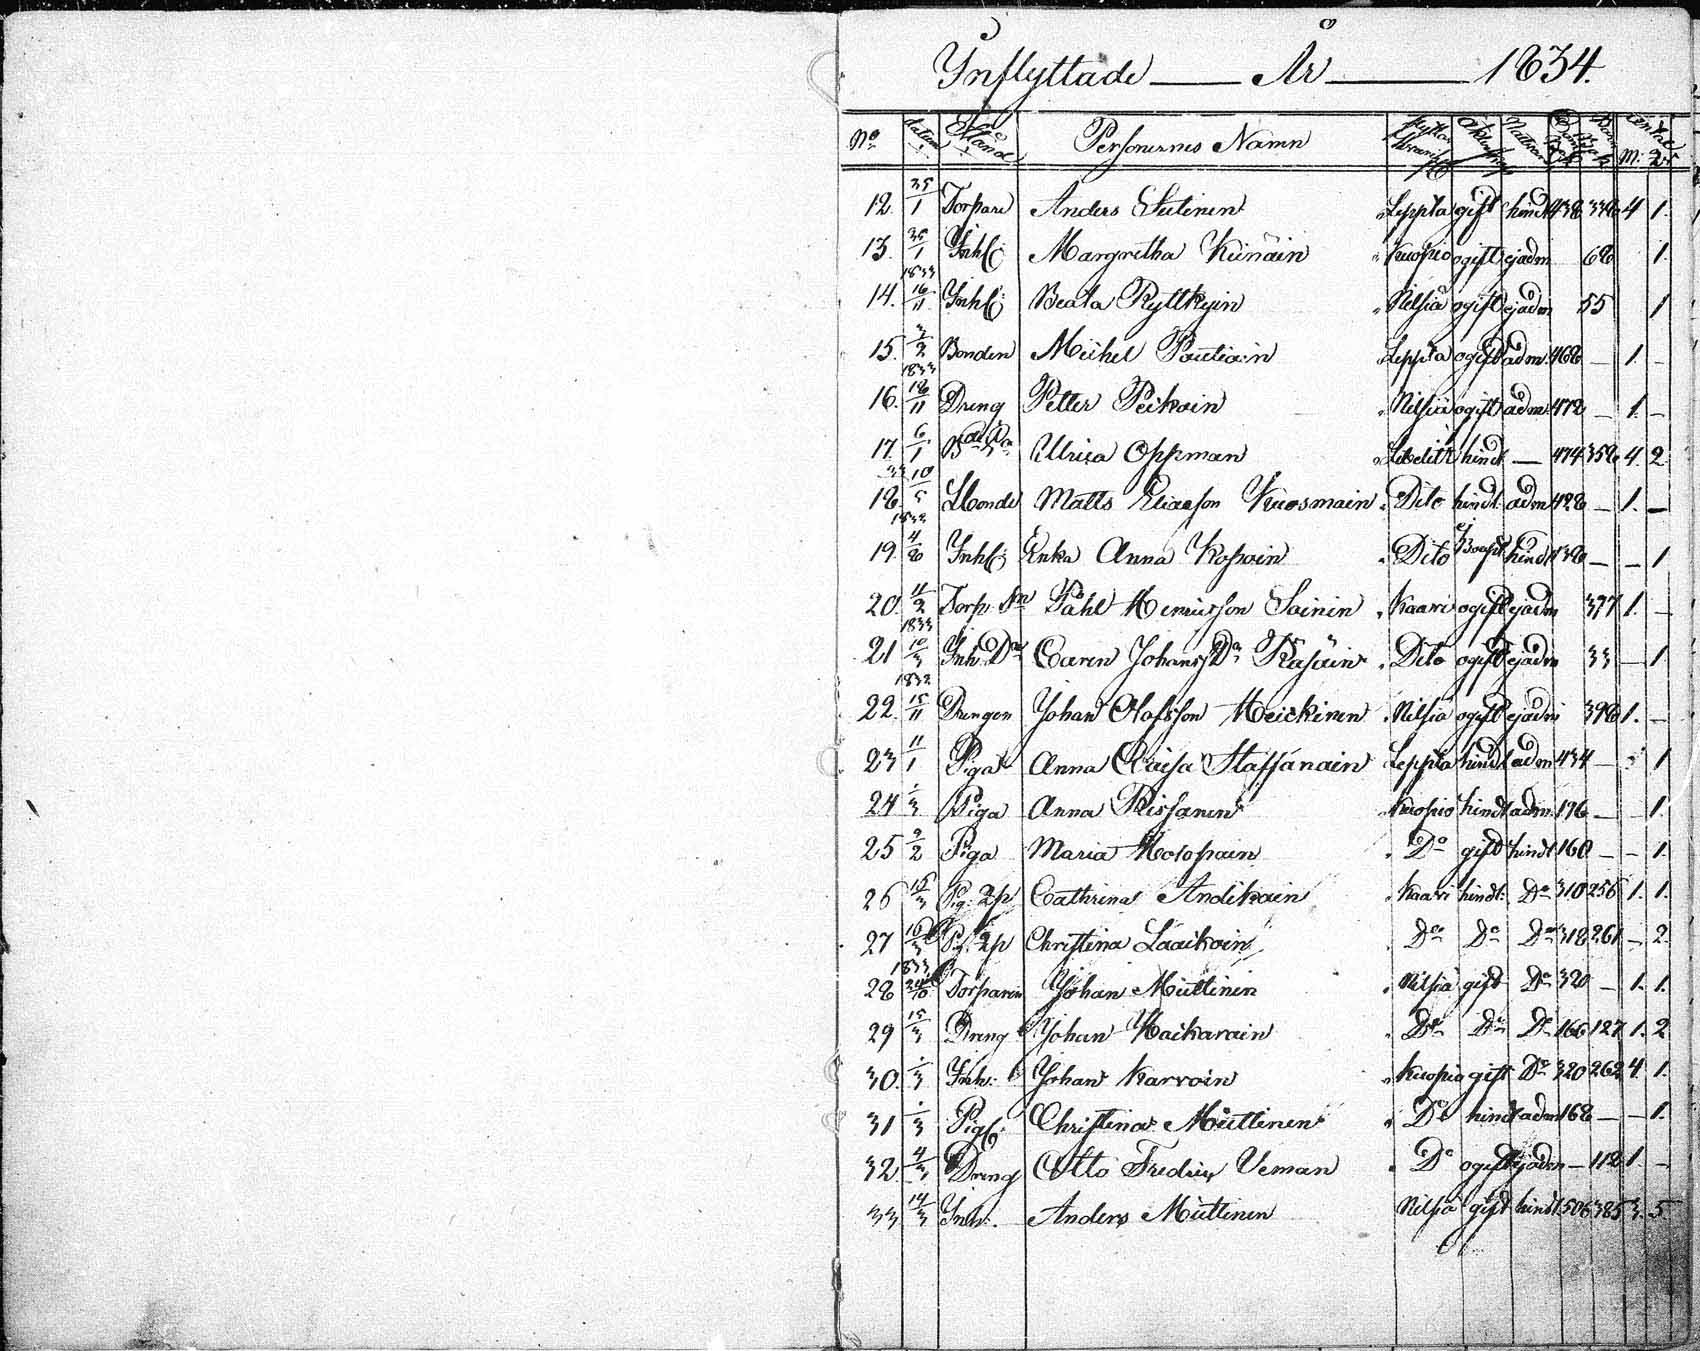 Inflyttade — År — 1834.
No datum Stånd Personernes Namn M: Q:
12. 25/1 Torpare Anders Sutinen Leppla gift hindl 438 348 4 1.
13. 25/1 Inh: Margretha Kiinäin Kuopio ogift ej adm 68 1.
1833
14. 16/11 Inh: Beata Ryttkyin Nilsiä ogift ej adm 55 1
15. 2/2 Bonden Michel Poutiain Leppla ogift adm 468 — 1. —
1833
16. 18/11 Dreng Petter Peikoin Nilsiä ogift adm 472 — 1. —
17. 6/1 Ulrica Oppman Libelitz hindl — 474 358 4. 2
33
18. 10/5 Matts Eliasson Kuosmain Dito hindl. adm 428 — 1. —
1832
19. 4/8 Inh: Enka Anna Kosoin Dito hindl 138 — — 1
20. 11/2 Torp. Sn Påhl Henricsson Soinin Kaavi ogift ej adm 377 1. —
1833
21 10/3 Inh. Dr Caren Johans Dr Räsäin Dito ogift ej adm 33 — 1
1832
22. 15/11 Drengen Johan Olofsson Meickinen Nilsiä ogift ej adm 398 1. —
23 11/1 Piga Anna Caisa Staffanain Leppla hindl adm 434 — 1
24 1/3 Piga Anna Rissanen Kuopio hindl adm 176 — — 1.
25 2/2 Piga Maria Holopain Do gift hindl 160 — — 1.
26 15/3 Pig: 2p Cathrina Andikain Kaavi hindl: Do 310 256 1. 1.
27 16/3 Pig. 2p Christina Läaikoin Do Do Do 318 261 — 2.
1833
28 24/10 Torparen Johan Miettinen Nilsiä gift Do 320 — 1. 1.
29 15/3 Dreng Johan Kaikarain Do Do Do 166 127 1. 2
30. 1/3 Inh: Johan Karvoin Kuopio gift Do 320 262 4. 1.
31 1/3 Pig: Christina Miettinen Do hindl adm 168 — — 1.
32. 4/3 Dreng Otto Fredric Veman Do ogift ej adm — 118 1. —
33 14/3 Inh: Anders Miettinen Nilsiä gift hindl 506 385 3. 5